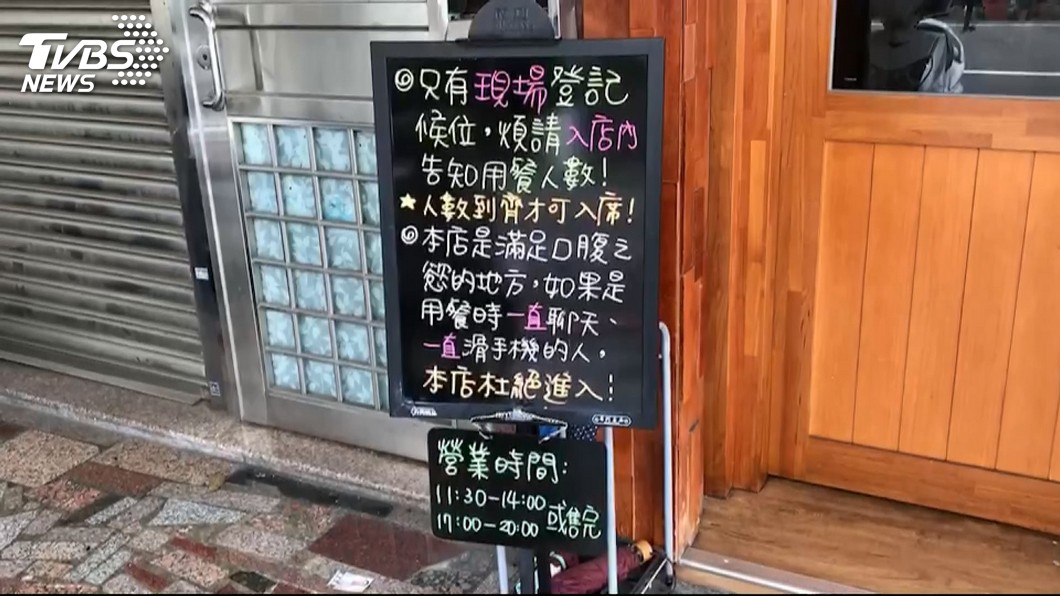 TVBS
NEWS
◎只有現場登記
候位，煩請入店內
告知用餐人數！
★人數到齊才可入席！
◎本店是滿足口腹之
慾的地方，如果是
用餐時一直聊天、
一直滑手機的人，
本店杜絕進入！
營業時間：
11:30-14:00
17:00-20:00 或售完